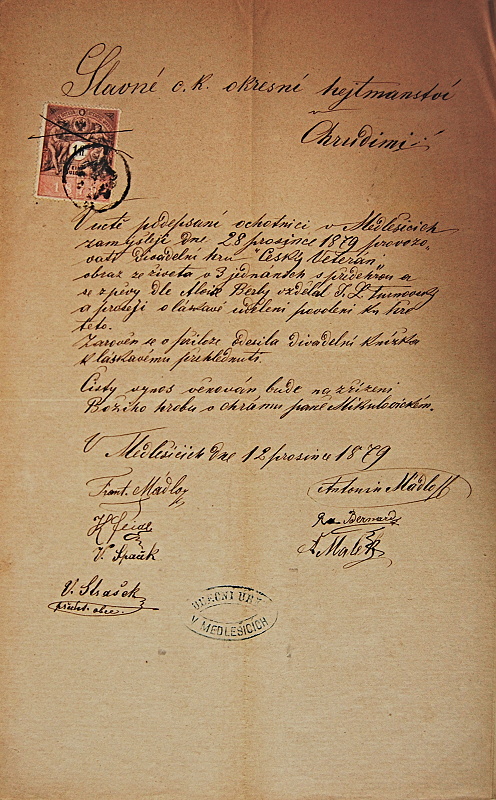 Slavné c. k. okresní hejtmanství
v
Chrudimi
V uctě podepsaní ochotníci v Medlešicích
zamýšlejí dne 28 prosince 1879 provozo-
vati divadelní hru "Český Veterán"
obraz ze života o 3 jednáních s předehrou a
se zpěvy dle Aloise Berly vzdělal J. L. Turnovský
a prosejí o láskavé udělení povolení ku hře
této.
Zároveň se v příloze odesílá divadelní knížka
k láskavému přehlédnutí.
Čistý výnos věnován bude na zřízení
Božího hrobu v chrámu páně Mikulovickém.
V Medlešicích dne 12 prosince 1879
Frant. Mádlo
Antonín Mádlo
Bernard
V. Špaček
A. Malek
V. Strašek
předst. obce.
OBECNÍ ÚŘAD
V MEDLEŠICÍCH